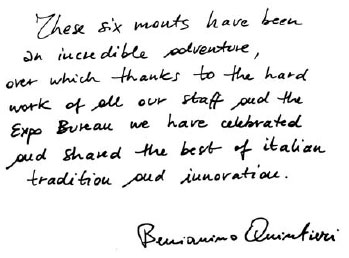 These six monts have been
an incredible adventure,
over which thanks to the hard
work of all our staff and the
Expo Bureau we have celebrated
and shared the best of italian
tradition and innovation.
Beniamino Quintieri